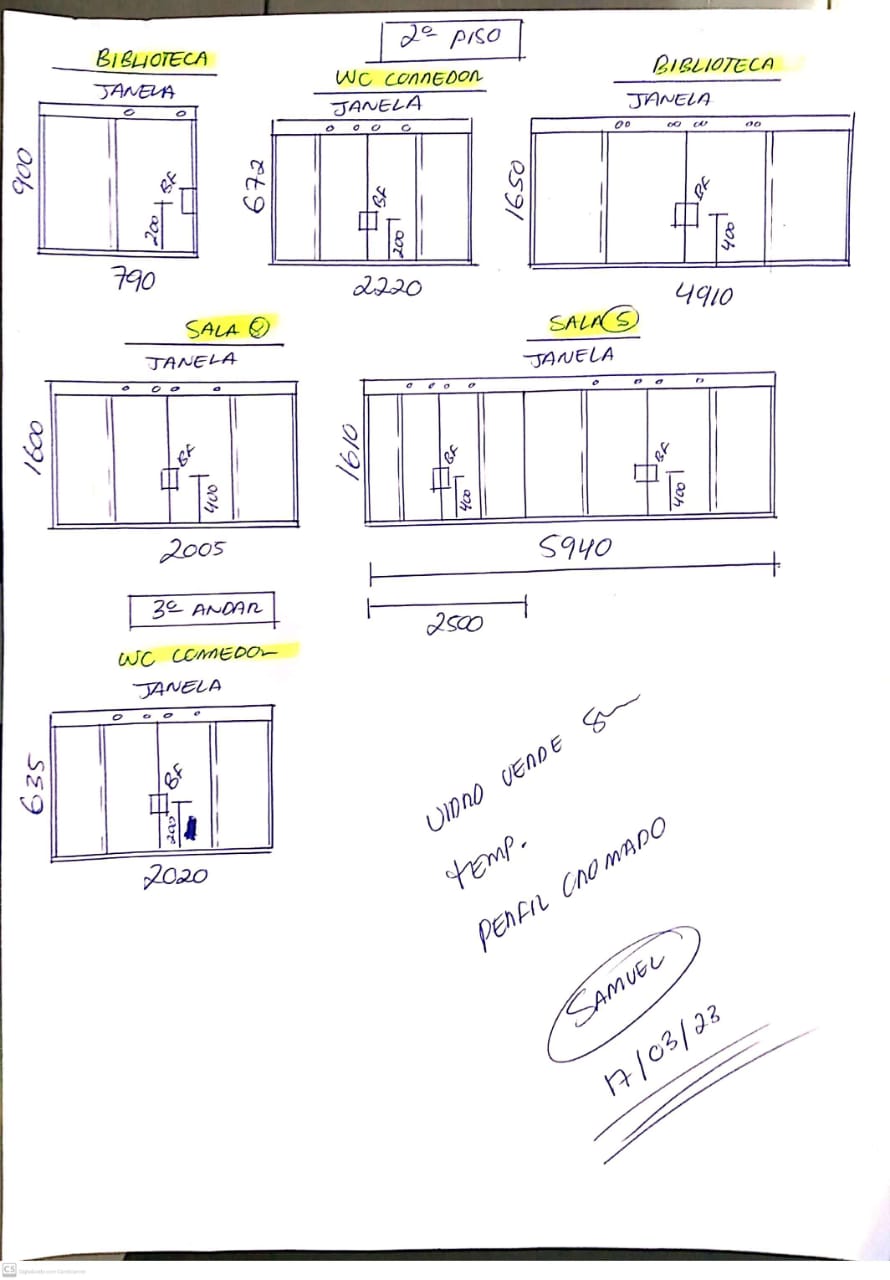 2º PISO
BIBLIOTECA
JANELA
900
BF
200
790
WC CORREDOR
JANELA
672
BF
200
2220
BIBLIOTECA
JANELA
1650
BF
400
4910
SALA
JANELA
1600
BF
400
2005
SALA 5
JANELA
1610
BF
400
BF
400
5940
2500
3º ANDAR
WC CORREDOR
JANELA
635
BF
200
2020
VIDRO VERDE 8
TEMP.
PERFIL CROMADO
SAMUEL
17/03/23
CS Digitalizado com CamScanner